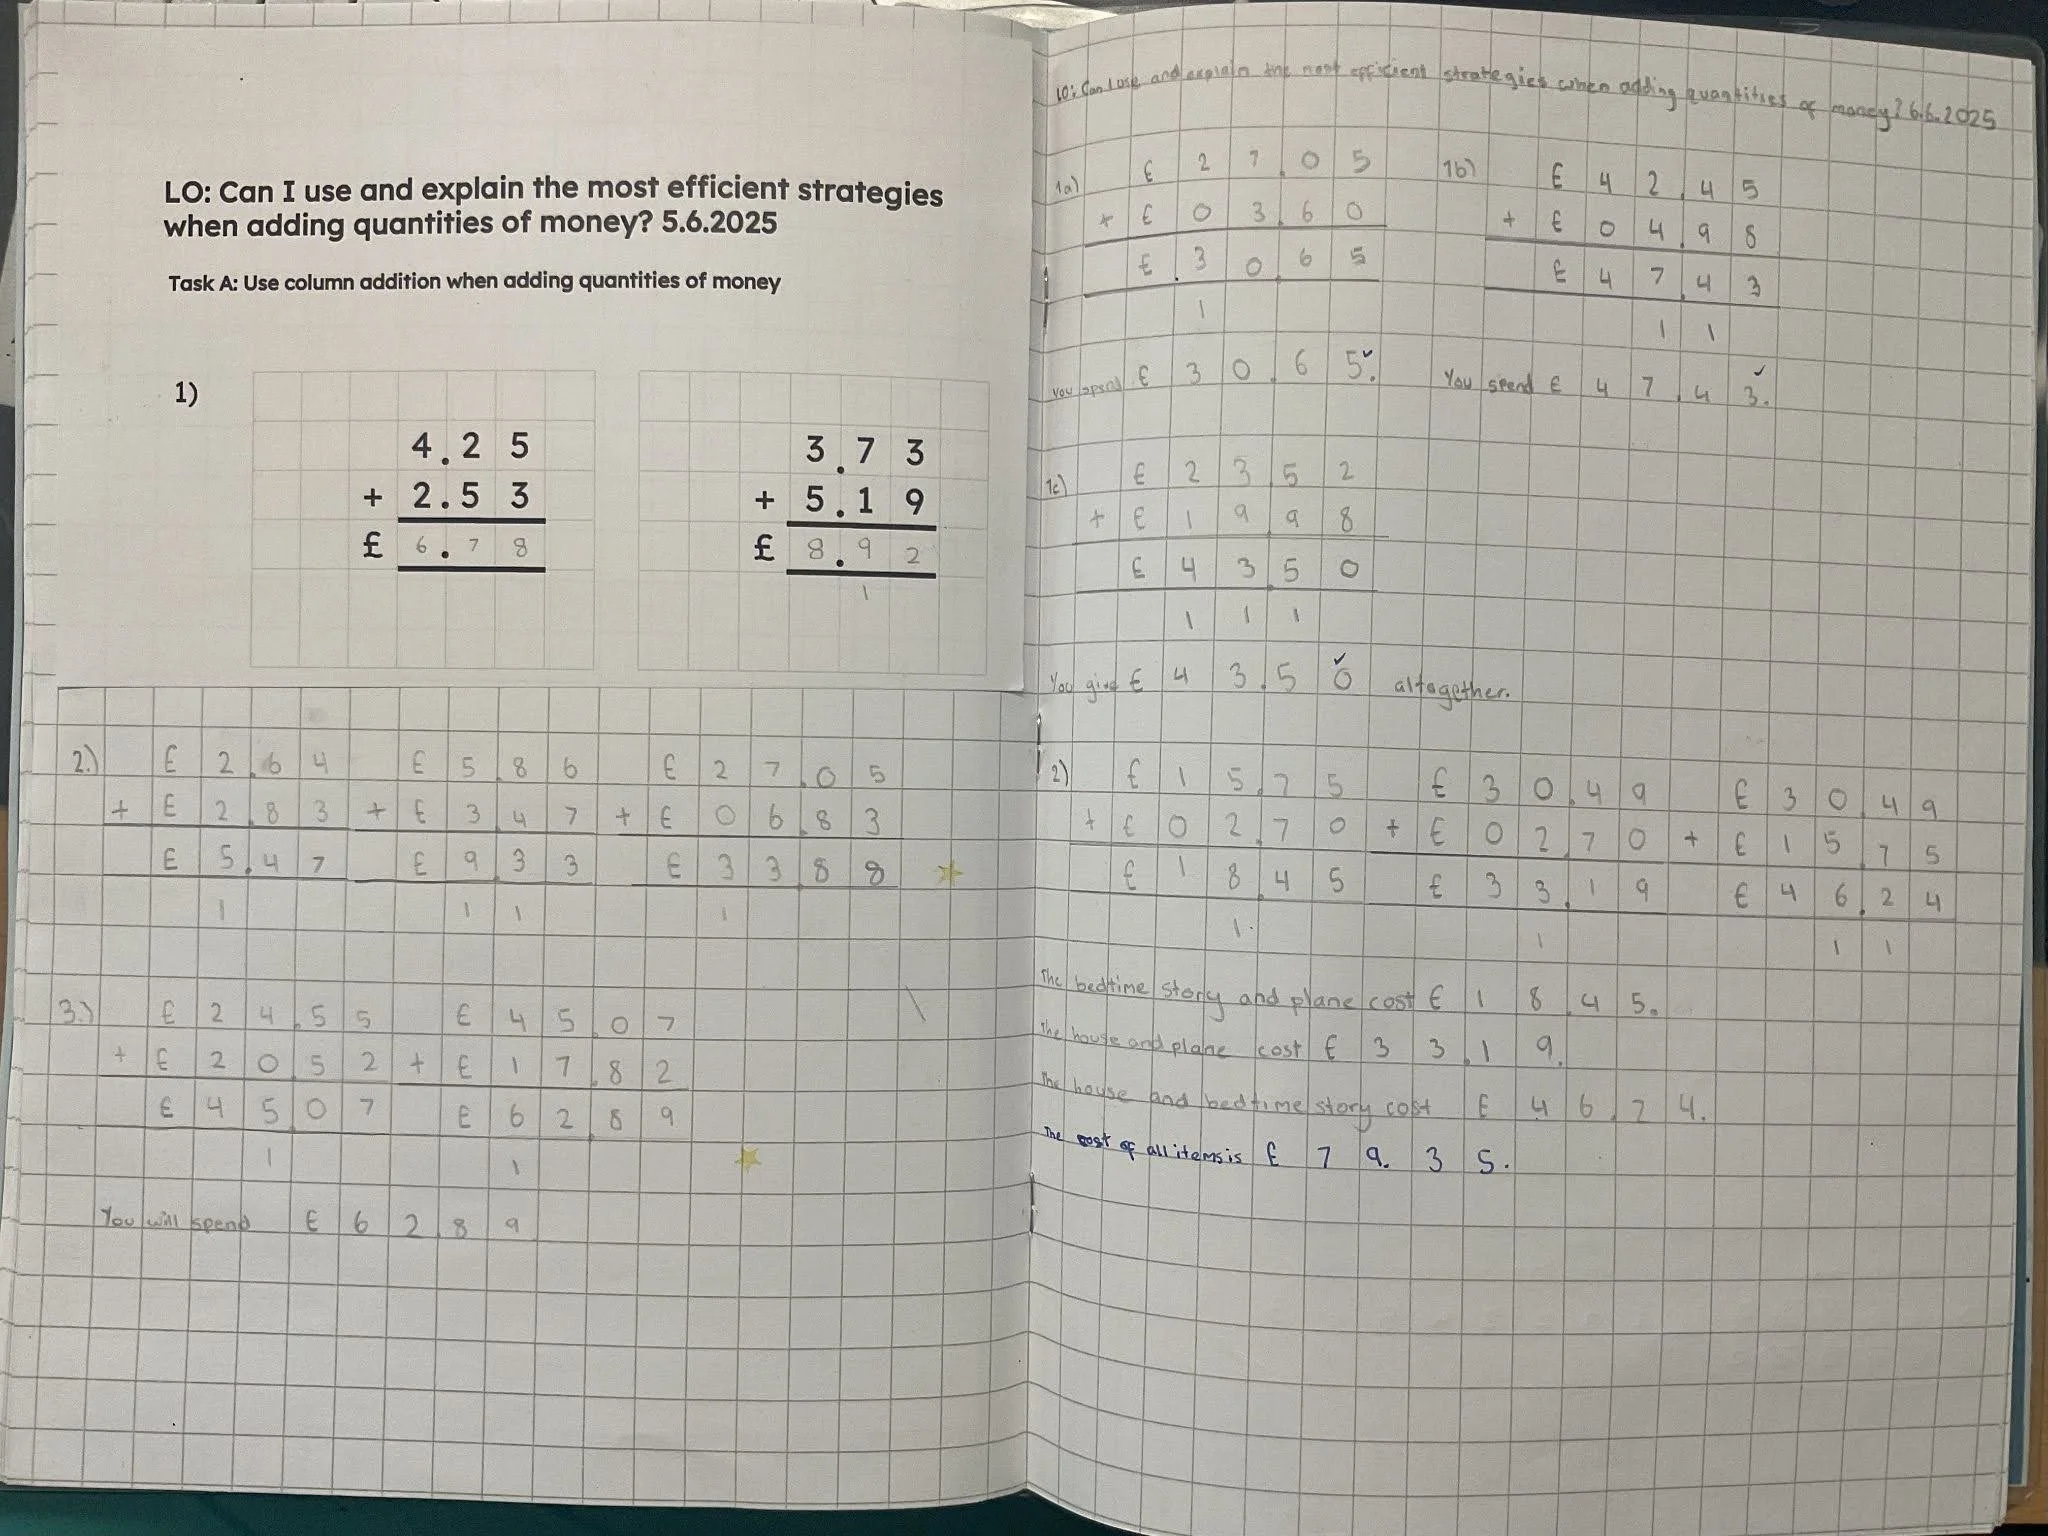 LO: Can I use and explain the most efficient strategies
when adding quantities of money? 5.6.2025
Task A: Use column addition when adding quantities of money
1)
4.25 3.73
+ 2.53 + 5.19
£ 6.78 £ 8.92
1
2.) £2.64 £5.86 £27.05
+ £2.83 + £3.47 + £06.83
£5.47 £9.33 £33.88
1 1 1 1
3.) £24.55 £45.07
+ £20.52 + £17.82
£45.07 £62.89
1 1
You will spend £62.89
LO: Can I use and explain the most efficient strategies when adding quantities of money? 6.6.2025
1a) £27.05 1b) £42.45
+ £03.60 + £04.98
£30.65 £47.43
1 1 1
You spend £30.65. You spend £47.43.
1c) £23.52
+ £19.98
£43.50
1 1 1
You give £43.50 altogether.
2) £15.75 £30.49 £30.49
+ £02.70 + £02.70 + £15.75
£18.45 £33.19 £46.24
1 1 1 1
The bedtime story and plane cost £18.45.
The house and plane cost £33.19.
The house and bedtime story cost £46.24.
The cost of all items is £79.35.